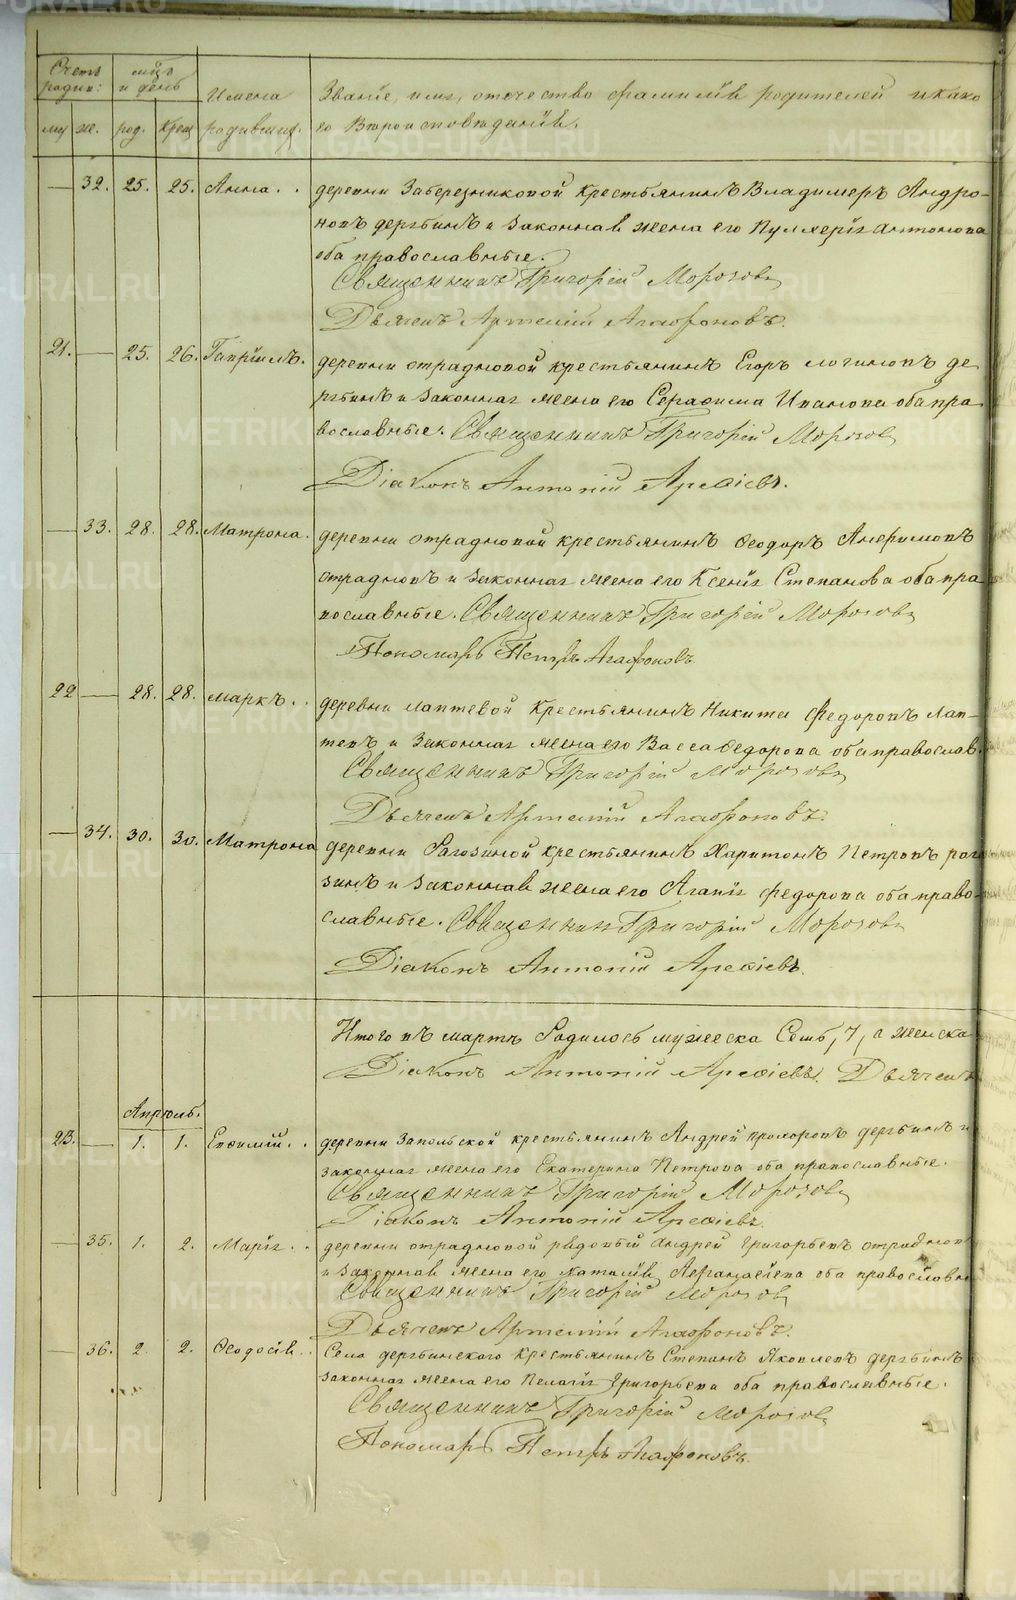 Счетъ родив: мцъ и день Имена Званіе, имя, отечество фамилія родителей и како
му же. род. крещ родивших. го Вѣроисповѣданія.
— 32. 25. 25. Анна. . деревни Заберезниковой крестьянинъ Владимеръ Андро-
новъ дерябинъ и законная жена его Пулхерія антонова
оба православные.
Священникъ Григорій Морозовъ
Дьячекъ Артемій Агафоновъ.
21. — 25. 26. Гавріилъ. деревни отрадновой крестьянинъ Егоръ логиновъ де
рябинъ и законная жена его Серафима Иванова оба пра
вославные. Священникъ Григорій Морозовъ
Діаконъ Антоній Арефіевъ.
— 33. 28. 28. Матрона. деревни отрадновой крестьянинъ Ѳеодоръ
отрадновъ и законная жена его Ксенія Степанова оба пра
вославные. Священникъ Григорій Морозовъ
Пономарь Петръ Агафоновъ
22 — 28. 28. Маркъ. . деревни лаптевой крестьянинъ Никита Федоровъ Лап-
тевъ и законная жена его Васса Ѳедорова оба православ.
Священникъ Григорій Морозовъ
Дьячекъ Артемій Агафоновъ.
— 34. 30. 30. Матрона деревни Рагозиной крестьянинъ Харитонъ Петровъ раго
зинъ и законная жена его Агапія федорова оба право-
славные. Священникъ Григорій Морозовъ
Діаконъ Антоній Арефіевъ.
Итого въ мартѣ Родилось мужеска Семь, 7, а женска
Діаконъ Антоній Арефіевъ. Дьячекъ
Апрель.
23. — 1. 1. Евфимій. . деревни Запольской крестьянинъ Андрей прохоровъ дерябинъ и
законная жена его Екатерина Петрова оба православные.
Священникъ Григорій Морозовъ
Діаконъ Антоній Арефіевъ.
— 35. 1. 2. Марія. . деревни отрадновой рядовый андрей григорьевъ отрадновъ
и законная жена его наталія Афанасіева оба православны
Священникъ Григорій Морозовъ
Дьячекъ Артемій Агафоновъ.
— 36. 2. 2. Ѳеодосія. . Села дерябинского крестьянинъ Степанъ Яковлевъ дерябинъ
законная жена его Пелагія григорьева оба православные.
Священникъ Григорій Морозовъ
Пономарь Петръ Агафоновъ.
METRIKI.GASO-URAL.RU